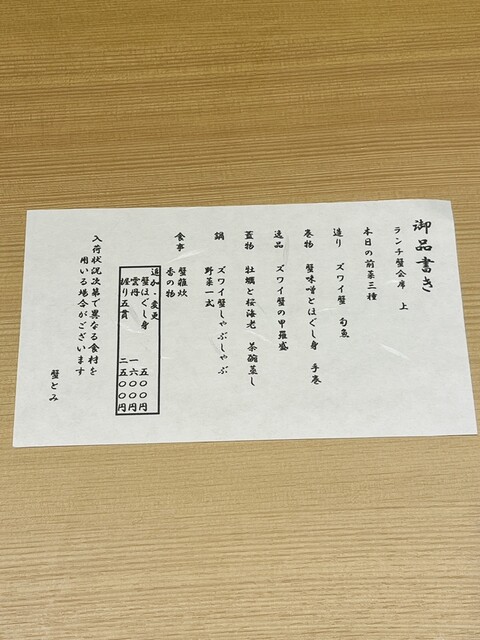 御品書き
ランチ蟹会席 上
本日の前菜三種
造り ズワイ蟹 旬魚
巻物 蟹味噌とほぐし身 手巻
逸品 ズワイ蟹の甲羅盛
蓋物 牡蠣と桜海老 茶碗蒸し
鍋 ズワイ蟹しゃぶしゃぶ
野菜一式
食事 蟹雑炊
香の物
追加・変更
蟹ほぐし身 五〇〇円
雲丹 一六〇〇円
握り五貫 二五〇〇円
入荷状況次第で異なる食材を
用いる場合がございます
蟹とみ